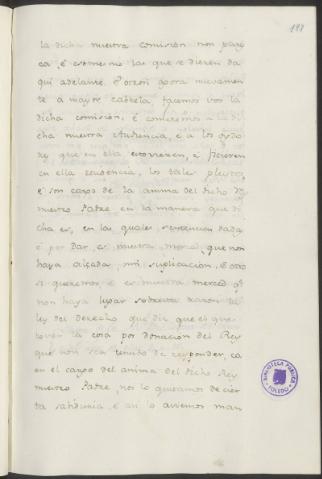 197
la dicha nuestra comision non pare
ca, é eso mesmo las que se dieren da
qui adelante. Porend agora nuevamen
te a mayor cabtela facemos vos la
dicha comisión, é cometemos a la di
cha nuestra Audiencia, é a los oydo
res que en ella estovieren, é ficieren
en ella residencia, los tales pleytos,
é son cargo de la anima del dicho Rey
nuestro Padre en la manera que di
cha es, en las quales sentencias dadas
é por dar, es nuestra merced, que non
haya alçada, nin suplicacion. E otro
si queremos, é es nuestra merced q.
non haya lugar sobresta razon la
ley del derecho que diz que el que
toviere la cosa por donacion del Rey
que non sea tenido de responder, ca
en el cargo del anima del dicho Rey
nuestro Padre, nos lo queremos de cier
ta sabiduria, é asi lo avemos man
BIBLIOTECA PUBLICA
TOLEDO